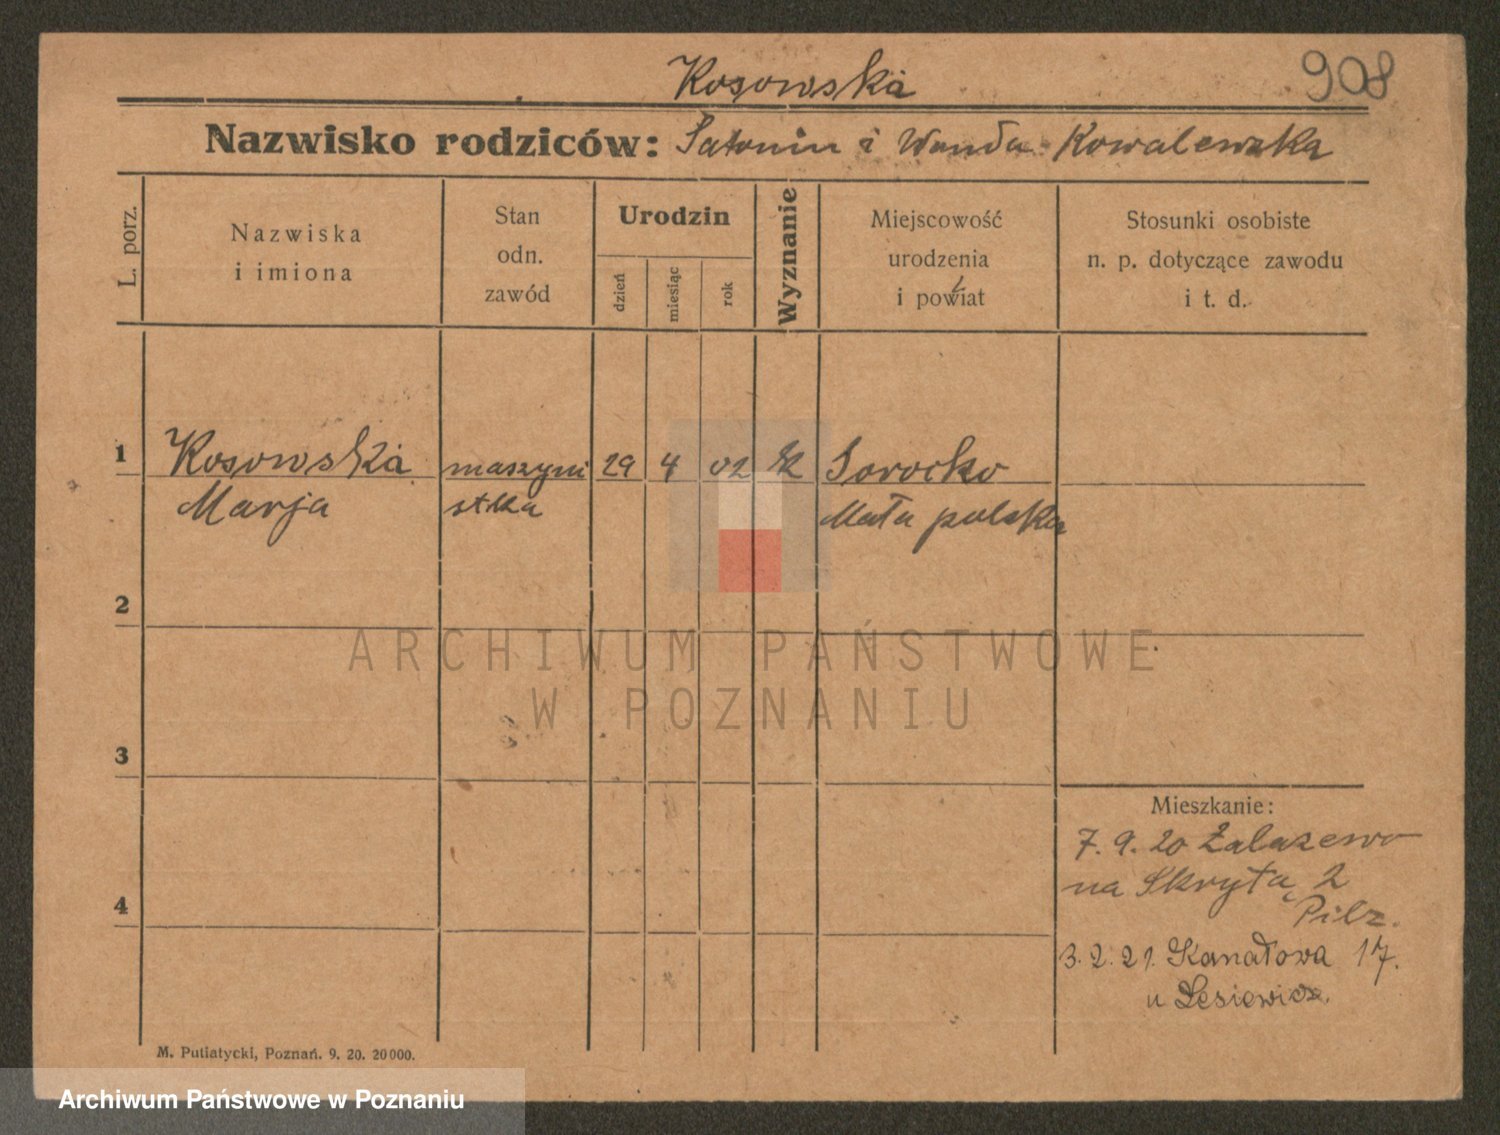 Kosowska
908
Nazwisko rodziców: Satonin i Wanda Kowalewska
L. porz.
Nazwiska
i imiona
Stan
odn.
zawód
Urodzin
dzień
miesiąc
rok
Wyznanie
Miejscowość
urodzenia
i powiat
Stosunki osobiste
n. p. dotyczące zawodu
i t. d.
1
Kosowska maszyni 29 4 02 Sorocko
Marja stka Mała polska
2
ARCHIWUM PAŃSTWOWE
W POZNANIU
3
Mieszkanie:
7. 9. 20 Zalazewo
na Skrytą 2
4
Pilz.
3. 2. 21. Kanałowa 17.
u Lesiewicz.
M. Putiatycki, Poznań. 9. 20. 20000.
Archiwum Państwowe w Poznaniu